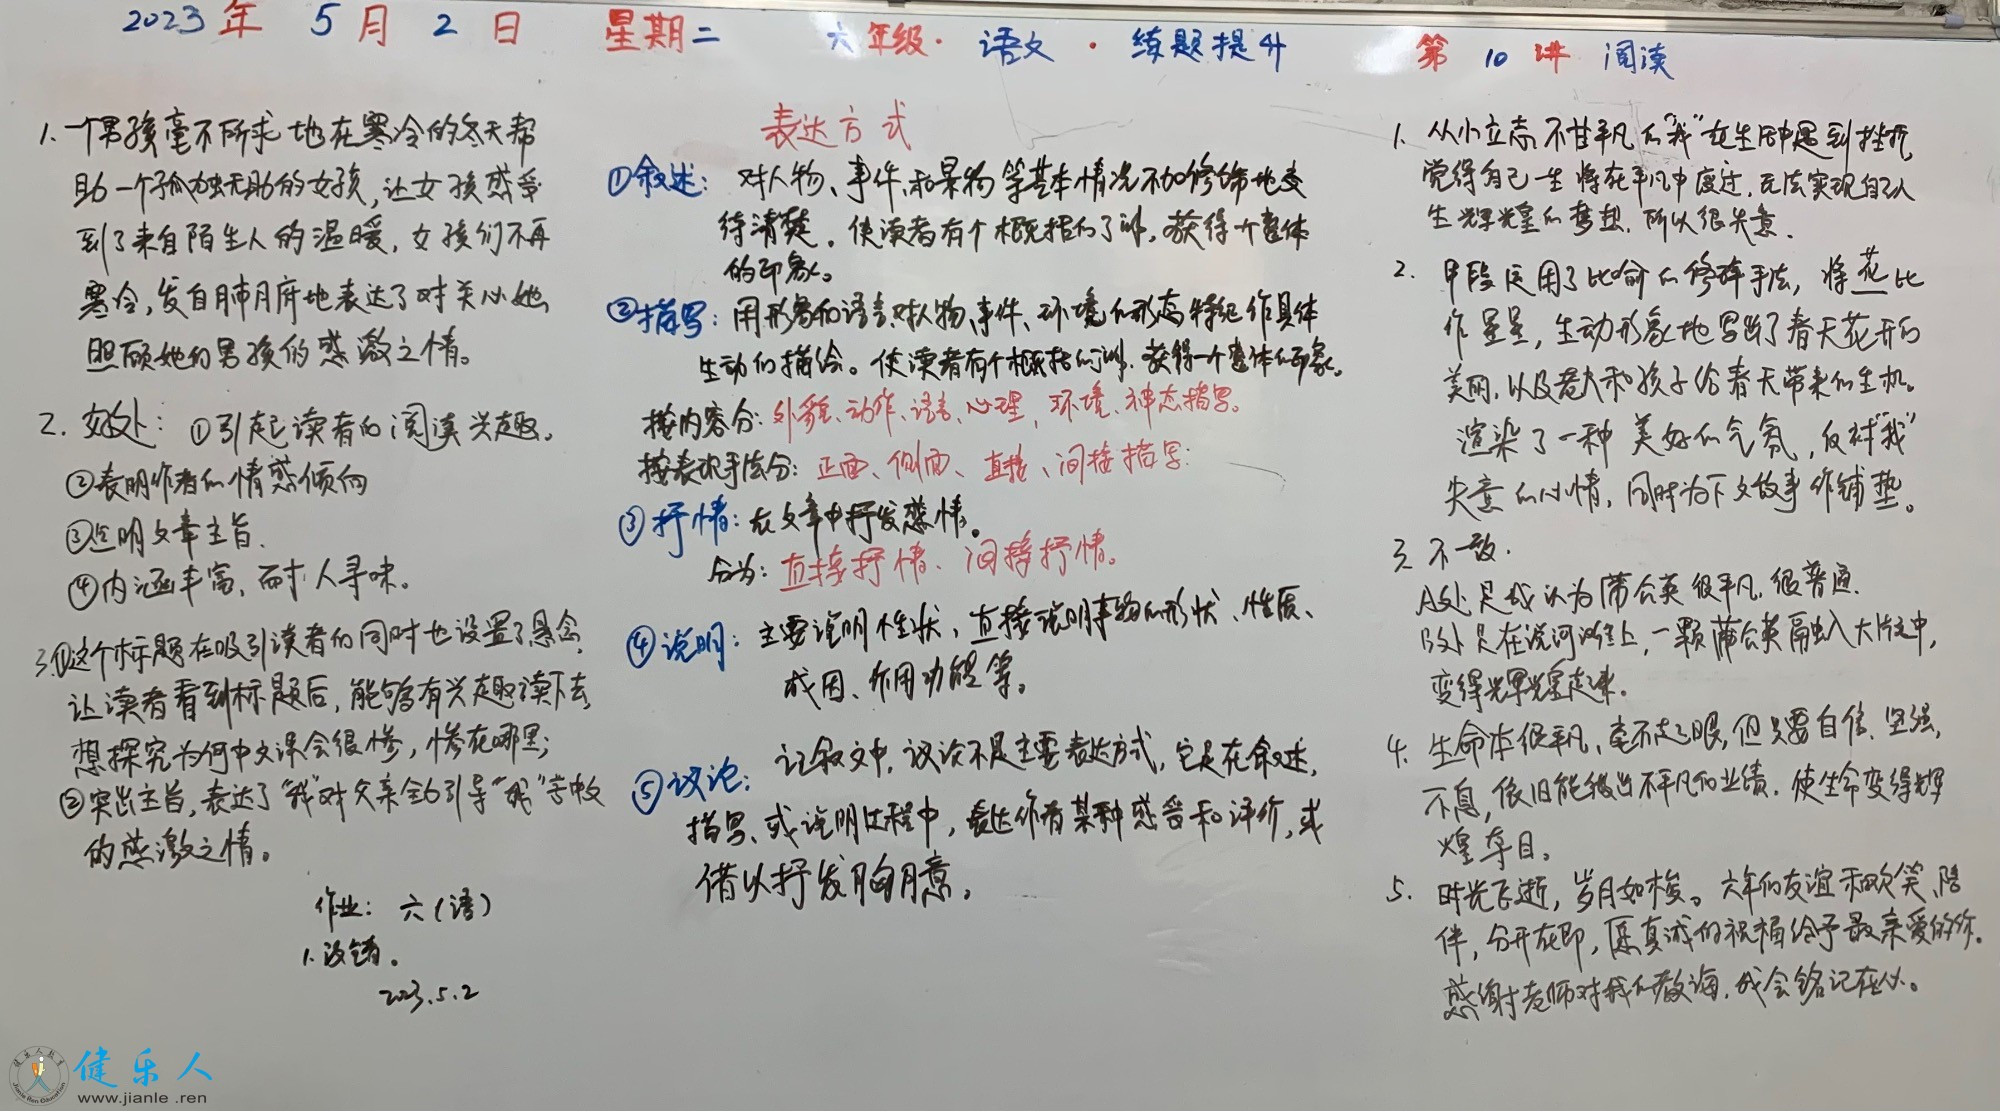 2023年 5月2日 星期二 六年级·语文·练题提升 第10讲 阅读
1. 一个男孩毫不所求地在寒冷的冬天帮
助一个孤独无助的女孩,让女孩感受
到了来自陌生人的温暖,女孩们不再
寒冷,发自肺月府地表达了对关心她
照顾她的男孩的感激之情。
2. 好处:①引起读者的阅读兴趣。
②表明作者的情感倾向
③点明文章主旨.
④内涵丰富,耐人寻味。
3.①这个标题在吸引读者的同时也设置了悬念,
让读者看到标题后,能够有兴趣读下去
想探究为何中文课会很惨,惨在哪里;
②突出主旨,表达了“我”对父亲
的感激之情。
作业:六(语)
1.改错。
2023.5.2
表达方式
①叙述:对人物、事件、和景物等基本情况不加修饰地交
待清楚。使读者有个概括的了解,获得一个整体
的印象。
②描写:用形象的语言对人物、事件、环境的形态特征作具体
生动的描绘。使读者有个概括的了解.获得一个整体的印象。
按内容分:外貌、动作、语言、心理、环境、神态描写。
按表现手法分:正面、侧面、直接、间接描写.
③抒情:在文章中抒发感情。
分为:直接抒情、间接抒情。
④说明:主要说明性状,直接说明事物的形状、性质、
成因、作用功能等。
⑤议论:记叙文中,议论不是主要表达方式,它是在叙述,
描写、或说明过程中,表达作者某种感受和评价,或
借以抒发胸臆。
1. 从小立志不甘平凡的“我”在生活中遇到挫折,
觉得自己一生将在平凡中度过,无法实现自己人
生辉煌的梦想,所以很失意.
2. 甲段运用了比喻的修辞手法,将花比
作星星,生动形象地写出了春天花开的
美丽,以及老夫和孩子给春天带来的生机。
渲染了一种美好的气氛,反衬“我”
失意的心情,同时为下文故事作铺垫。
3. 不一致.
A处是我认为蒲公英很平凡,很普通.
B处是在说河滩上,一颗蒲公英融入大片之中,
变得辉煌起来.
4. 生命本很平凡、毫不起眼,但只要自信、坚强,
不息,依旧能做出不平凡的业绩.使生命变得辉
煌夺目。
5. 时光飞逝,岁月如梭。六年的友谊和欢笑、陪
伴,分开在即,愿真诚的祝福给予最亲爱的你。
感谢老师对我的教诲,我会铭记在心。
健乐人
www.jianle.ren